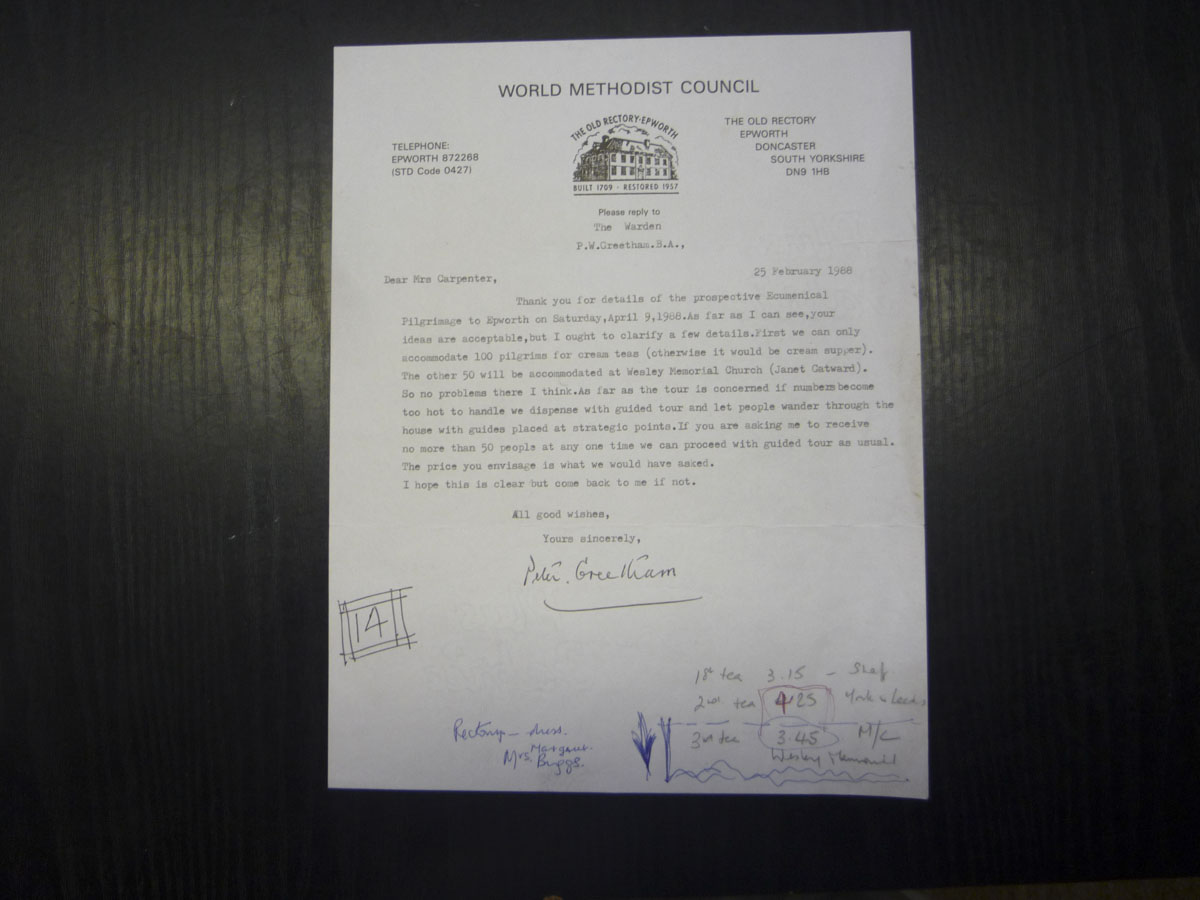 WORLD METHODIST COUNCIL
TELEPHONE:
EPWORTH 872268
(STD Code 0427)
THE OLD RECTORY·EPWORTH
BUILT 1709 · RESTORED 1957
THE OLD RECTORY
EPWORTH
DONCASTER
SOUTH YORKSHIRE
DN9 1HB
Please reply to
The Warden
P.W.Greetham.B.A.,
25 February 1988
Dear Mrs Carpenter,
Thank you for details of the prospective Ecumenical
Pilgrimage to Epworth on Saturday,April 9,1988.As far as I can see,your
ideas are acceptable,but I ought to clarify a few details.First we can only
accommodate 100 pilgrims for cream teas (otherwise it would be cream supper).
The other 50 will be accommodated at Wesley Memorial Church (Janet Catward).
So no problems there I think.As far as the tour is concerned if numbers become
too hot to handle we dispense with guided tour and let people wander through the
house with guides placed at strategic points.If you are asking me to receive
no more than 50 people at any one time we can proceed with guided tour as usual.
The price you envisage is what we would have asked.
I hope this is clear but come back to me if not.
All good wishes,
Yours sincerely,
Peter. Greetham
14
1st tea 3.15 - Shef
2nd tea 4.25 York & Leeds
3rd tea 3.45 M/C
Wesley Memorial
Rectory - dress.
Mrs. Margaret
Briggs.